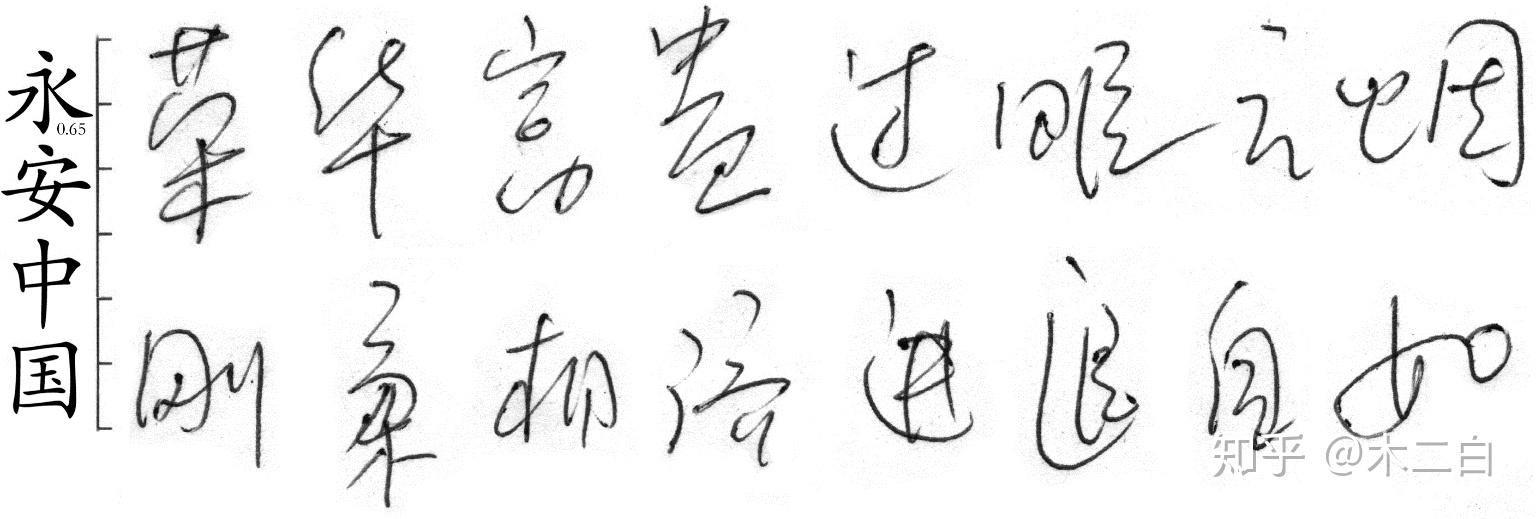 永安中国
0.65
荣华富贵过眼云烟
刚柔相济进退自如
知乎 @木二白